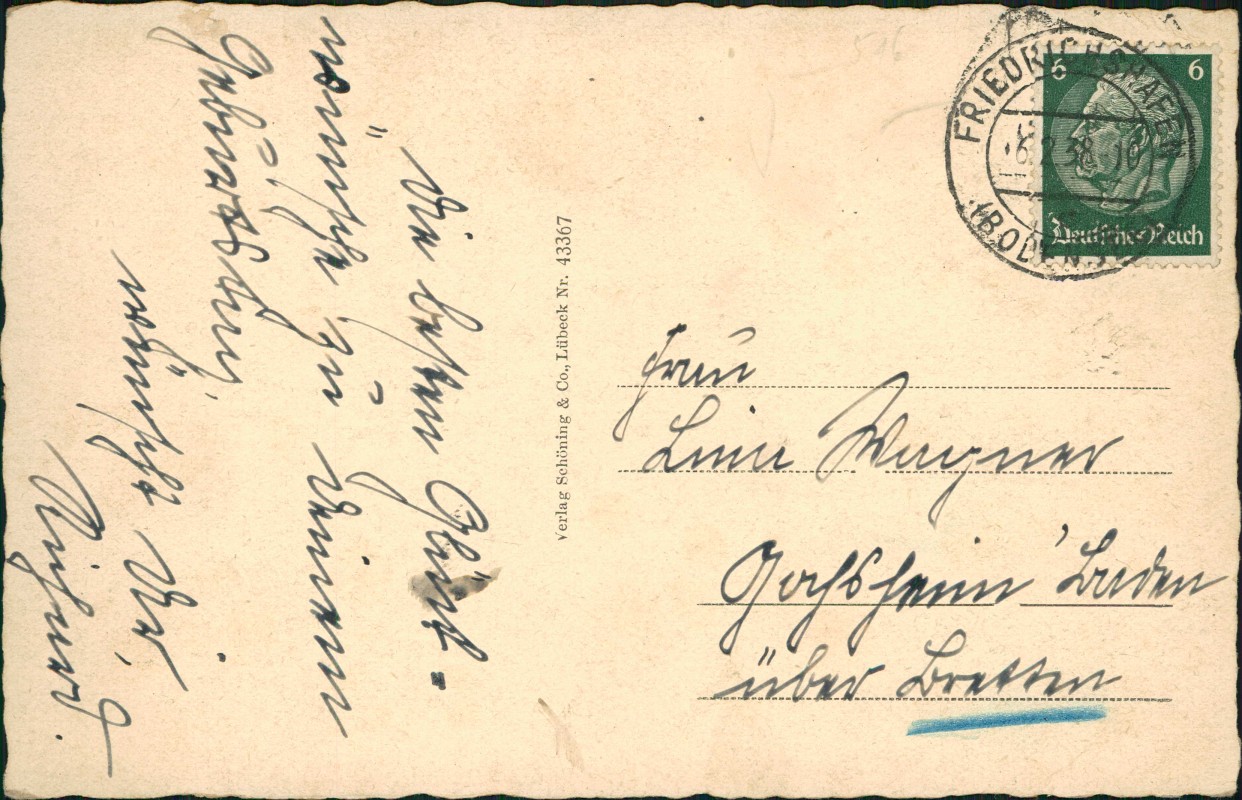 Die besten Glück-
wünsche zu Deinem
Geburtstag,
wünscht Dir,
Richard.
Verlag Schöning & Co., Lübeck Nr. 43367
FRIEDRICHSHAFEN
(BODENSEE)
6 6
Deutsches Reich
Frau
Lina Wagner
Gochsheim, Baden
über Bretten